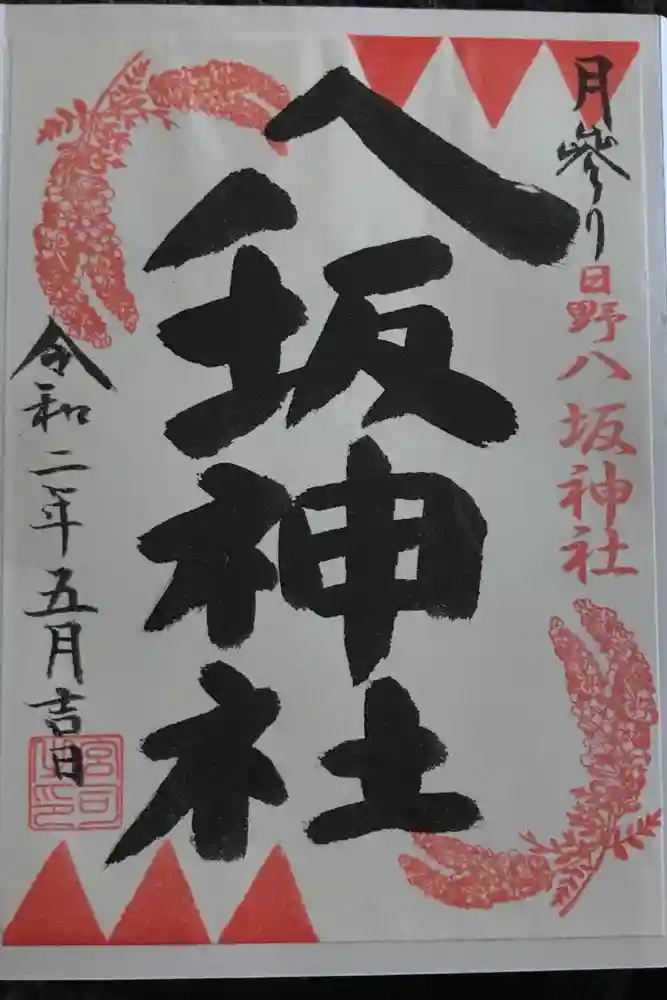 月参り
日野八坂神社
八坂神社
令和二年五月吉日
宮司之印